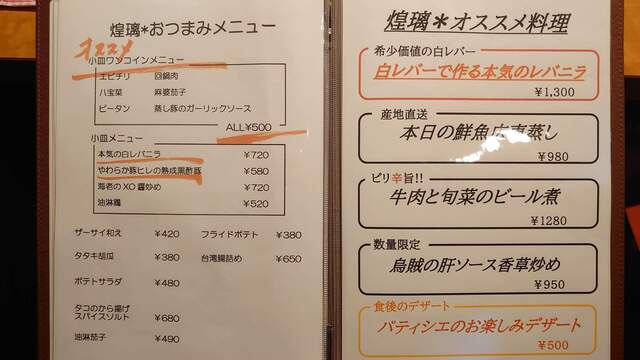 煌璃*おつまみメニュー
オススメ
小皿ワンコインメニュー
エビチリ 回鍋肉
八宝菜 麻婆茄子
ピータン 蒸し豚のガーリックソース
ALL¥500
小皿メニュー
本気の白レバニラ ¥720
やわらか豚ヒレの熟成黒酢豚 ¥580
海老のXO醤炒め ¥720
油淋鶏 ¥520
ザーサイ和え ¥420 フライドポテト ¥380
タタキ胡瓜 ¥380 台湾腸詰め ¥650
ポテトサラダ ¥480
タコのから揚げ
スパイスソルト ¥680
油淋茄子 ¥490
煌璃*オススメ料理
希少価値の白レバー
白レバーで作る本気のレバニラ
¥1,300
産地直送
本日の鮮魚広東蒸し
¥980
ピリ辛旨!!
牛肉と旬菜のビール煮
¥1280
数量限定
烏賊の肝ソース香草炒め
¥950
食後のデザート
パティシエのお楽しみデザート
¥500